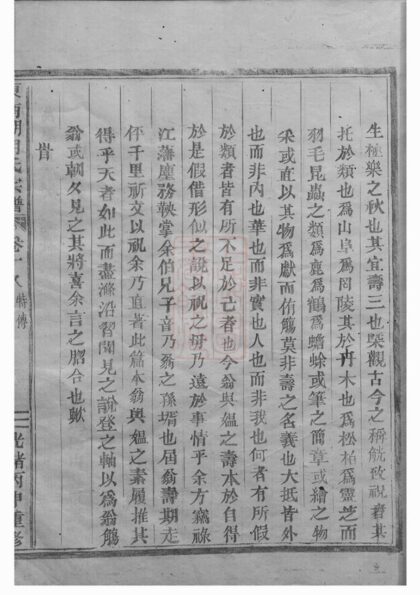 生極樂之秋也其宜壽三也槩觀古今之稱觥致祝者其
托於類也為山阜為岡陵其於卉木也為松柏為靈芝而
羽毛昆蟲之類為鹿為鶴為蟾蜍或筆之簡章或繪之物
采或直以其物為獻而侑觴莫非壽之名義也大抵皆外
也而非內也華也而非實也人也而非我也何者有所假
於類者皆有所不足於己者也今翁與媼之壽本於自得
於是假借形似之說以祝之毋乃遠於事情乎余方竊祿
江藩塵務鞅掌余伯兄子音乃翁之孫壻也屆翁壽期走
伻千里祈文以祝余乃直著此篇本翁與媼之素履推其
得乎天者如此而盡滌沿習聞見之說登之軸以為翁觴
翁或朝夕見之其將喜余言之脗合也歟
旹
氏宗譜
卷十八
特傳
光緒丙申重修